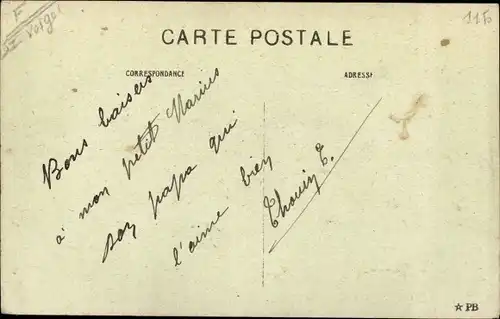 11 Fr
CARTE POSTALE
CORRESPONDANCE
ADRESSE
Bons baisers
à mon petit Marius
son papa qui
l'aime bien
Thouin E.
☆ PB